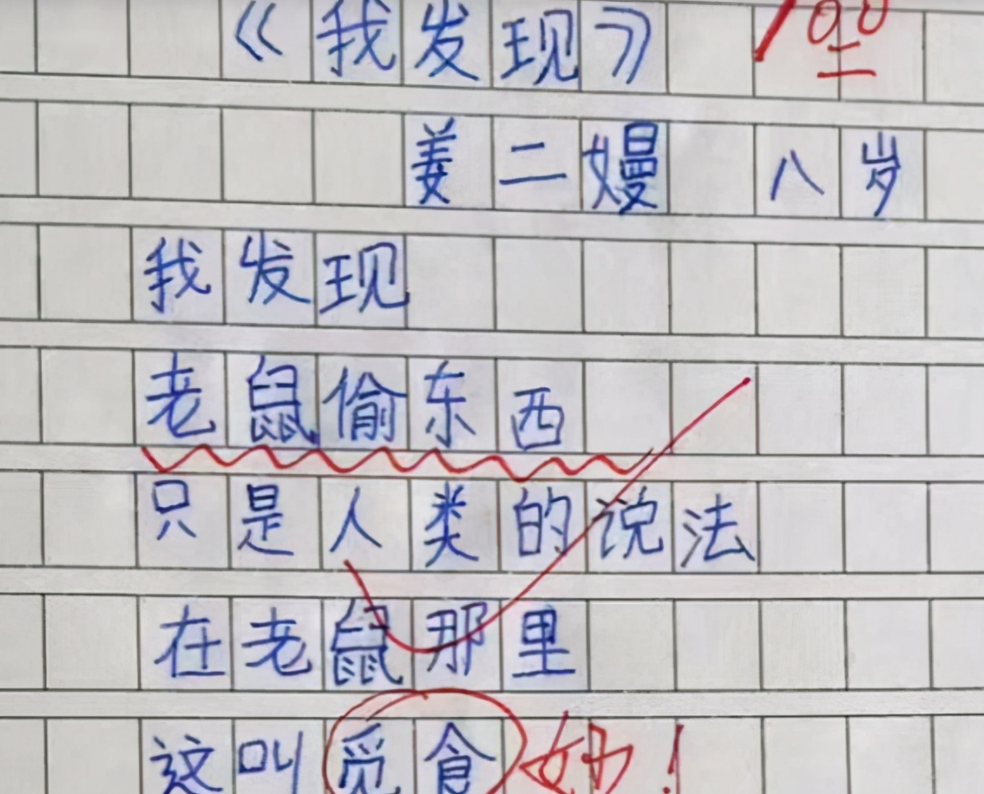 《我发现》 100
姜二嫚 八岁
我发现
老鼠偷东西
只是人类的说法
在老鼠那里
这叫觅食 妙！